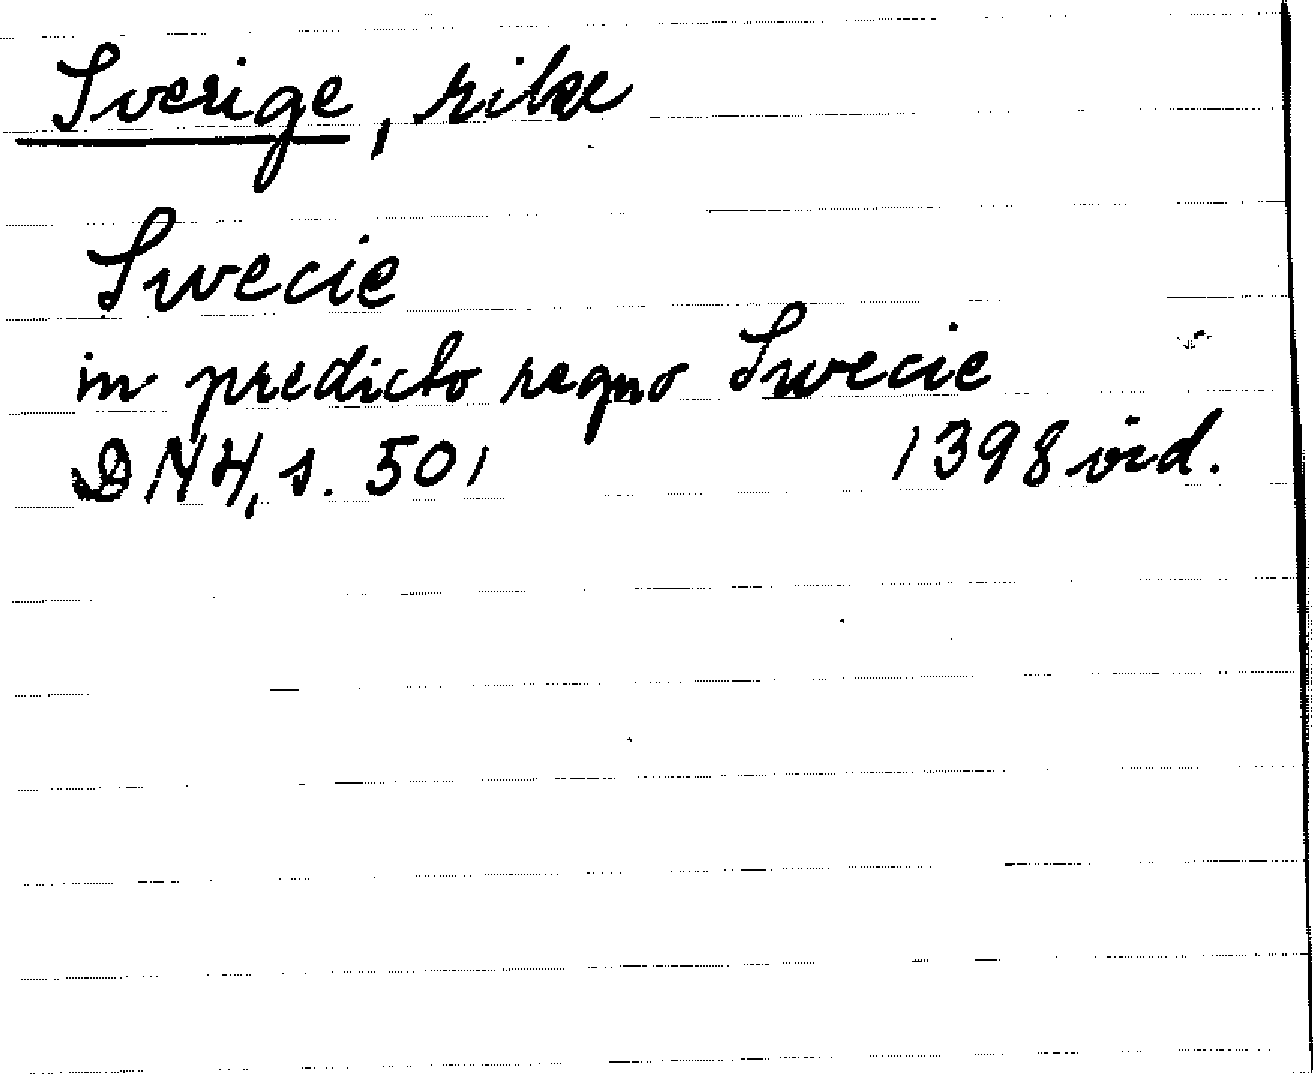 Sverige, rike
Swecie
in predicto regno Swecie
DN4, s. 501 1398 vid.